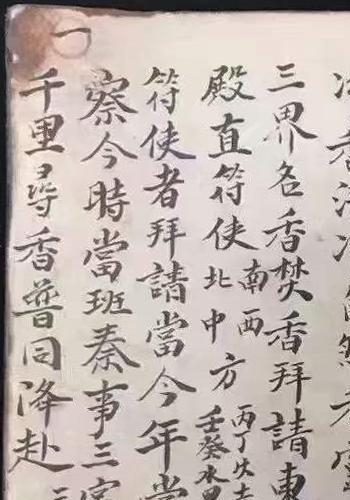 三界名香焚香拜請東
殿直符使南西北中方丙丁火壬癸水
符使者拜請當今年當
察今時當班奏事三
千里尋香普同降赴